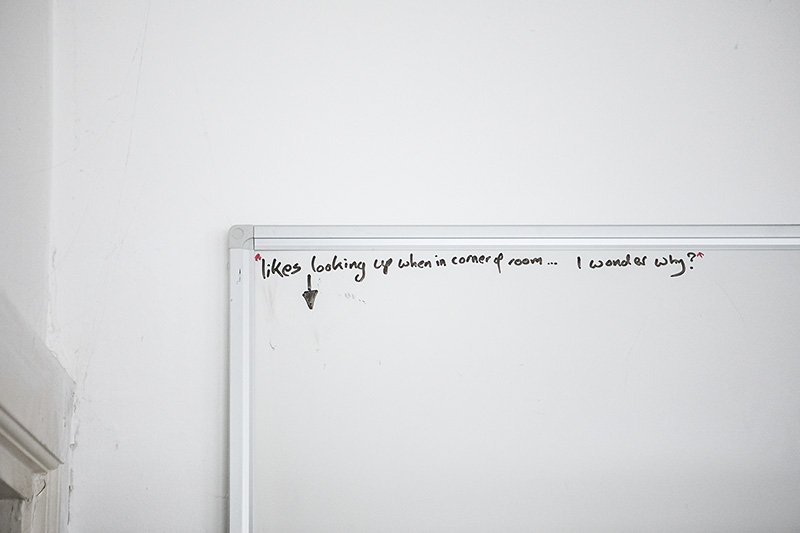 "likes looking up when in corner of room... I wonder why?"